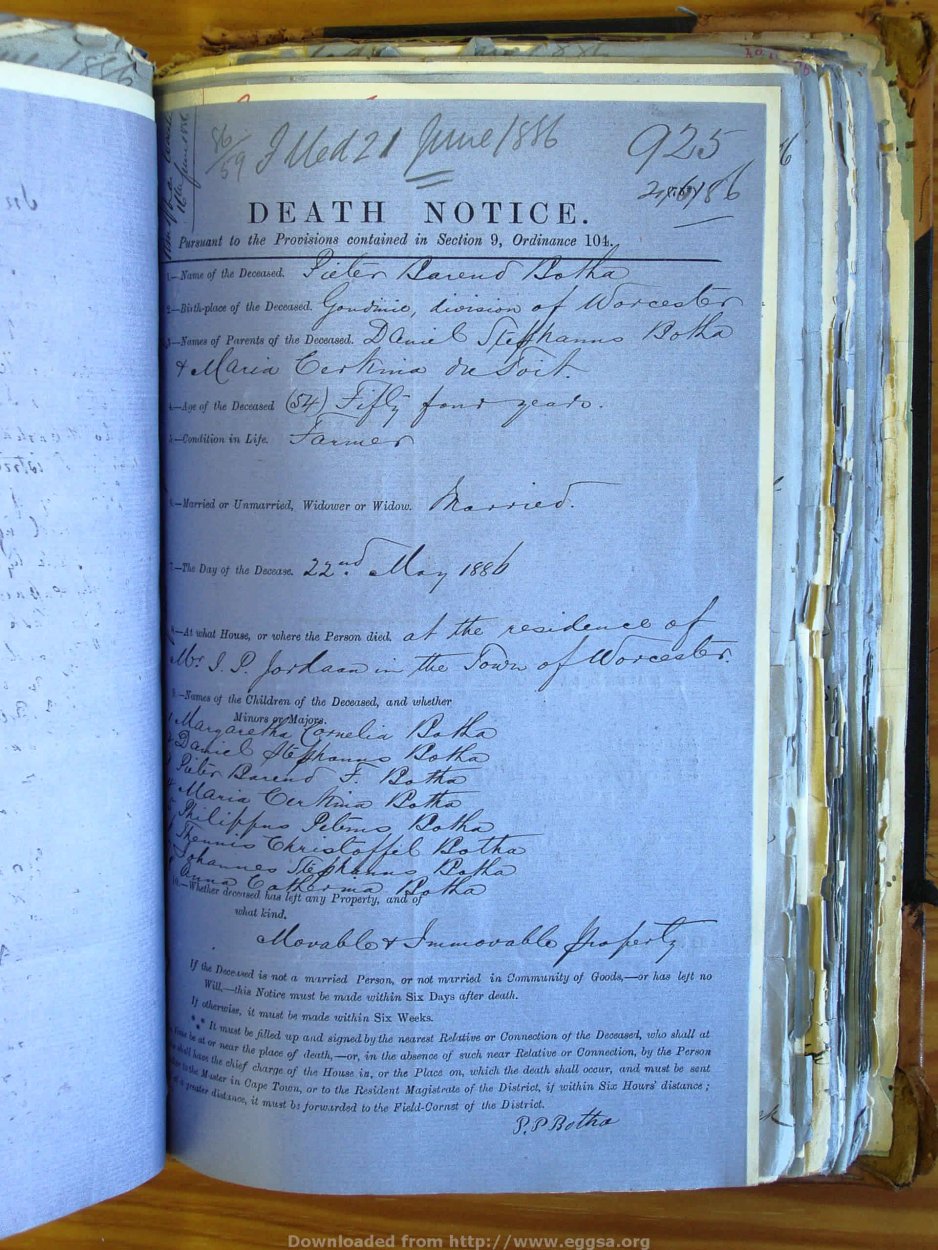 86/59 Filed 21 June 1886
925
DEATH NOTICE.
Pursuant to the Provisions contained in Section 9, Ordinance 104.
1.—Name of the Deceased. Pieter Barend Botha
2.—Birth-place of the Deceased. Goudinie, division of Worcester
3.—Names of Parents of the Deceased. Daniel Stephanus Botha
& Maria Certina du Toit.
4.—Age of the Deceased (54) Fifty four years.
5.—Condition in Life. Farmer
6.—Married or Unmarried, Widower or Widow. Married.
7.—The Day of the Decease. 22nd May 1886
8.—At what House, or where the Person died. at the residence of
Mr J. P. Jordaan in the Town of Worcester.
9.—Names of the Children of the Deceased, and whether
Minors or Majors.
1 Margaretha Cornelia Botha
2 Daniel Stephanus Botha
3 Pieter Barend F. Botha
4 Maria Certina Botha
5 Philippus Petrus Botha
6 Theunis Christoffel Botha
7 Johannes Stephanus Botha
8 Anna Catherina Botha
10.—Whether deceased has left any Property, and of
what kind.
Movable & Immovable property
If the Deceased is not a married Person, or not married in Community of Goods,—or has left no
Will,—this Notice must be made within Six Days after death.
If otherwise, it must be made within Six Weeks.
*** It must be filled up and signed by the nearest Relative or Connection of the Deceased, who shall at
time be at or near the place of death,—or, in the absence of such near Relative or Connection, by the Person
shall have the chief charge of the House in, or the Place on, which the death shall occur, and must be sent
to the Master in Cape Town, or to the Resident Magistrate of the District, if within Six Hours' distance;
if of a greater distance, it must be forwarded to the Field-Cornet of the District.
P. P. Botha
Downloaded from http://www.eggsa.org